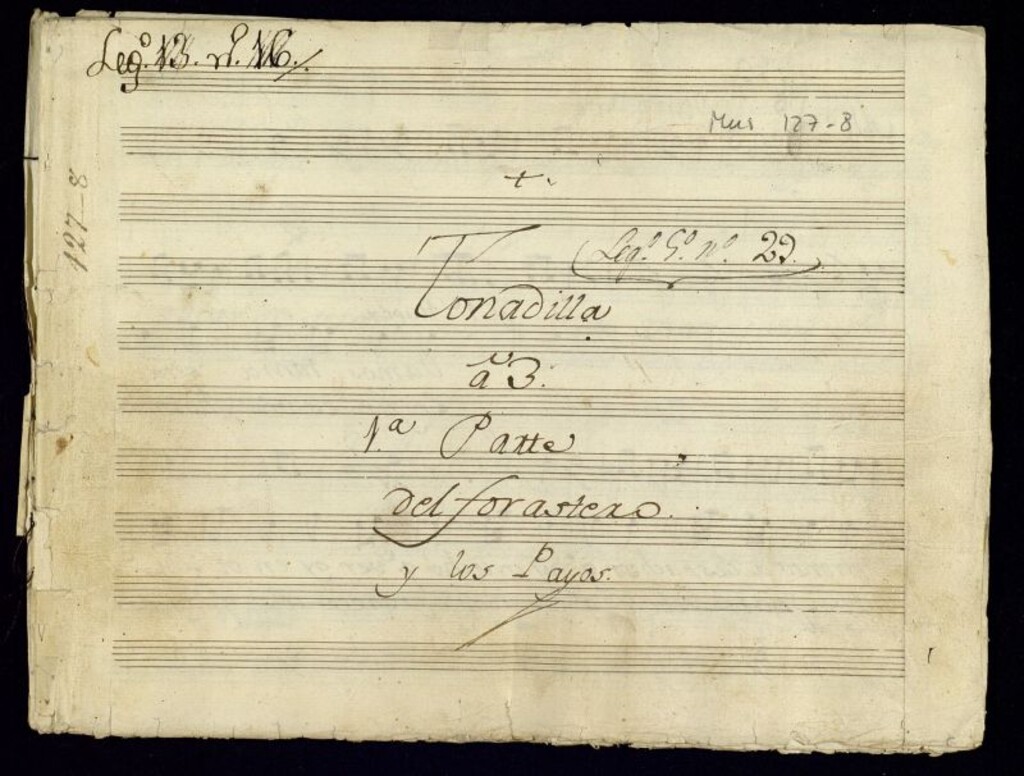 Leg.º 13. nº. 16.
Mus 127-8
127-8
+.
Leg.º G.º n.º 22.
Tonadilla
a 3.
1.ª Partte
del forastero.
y los Payos.